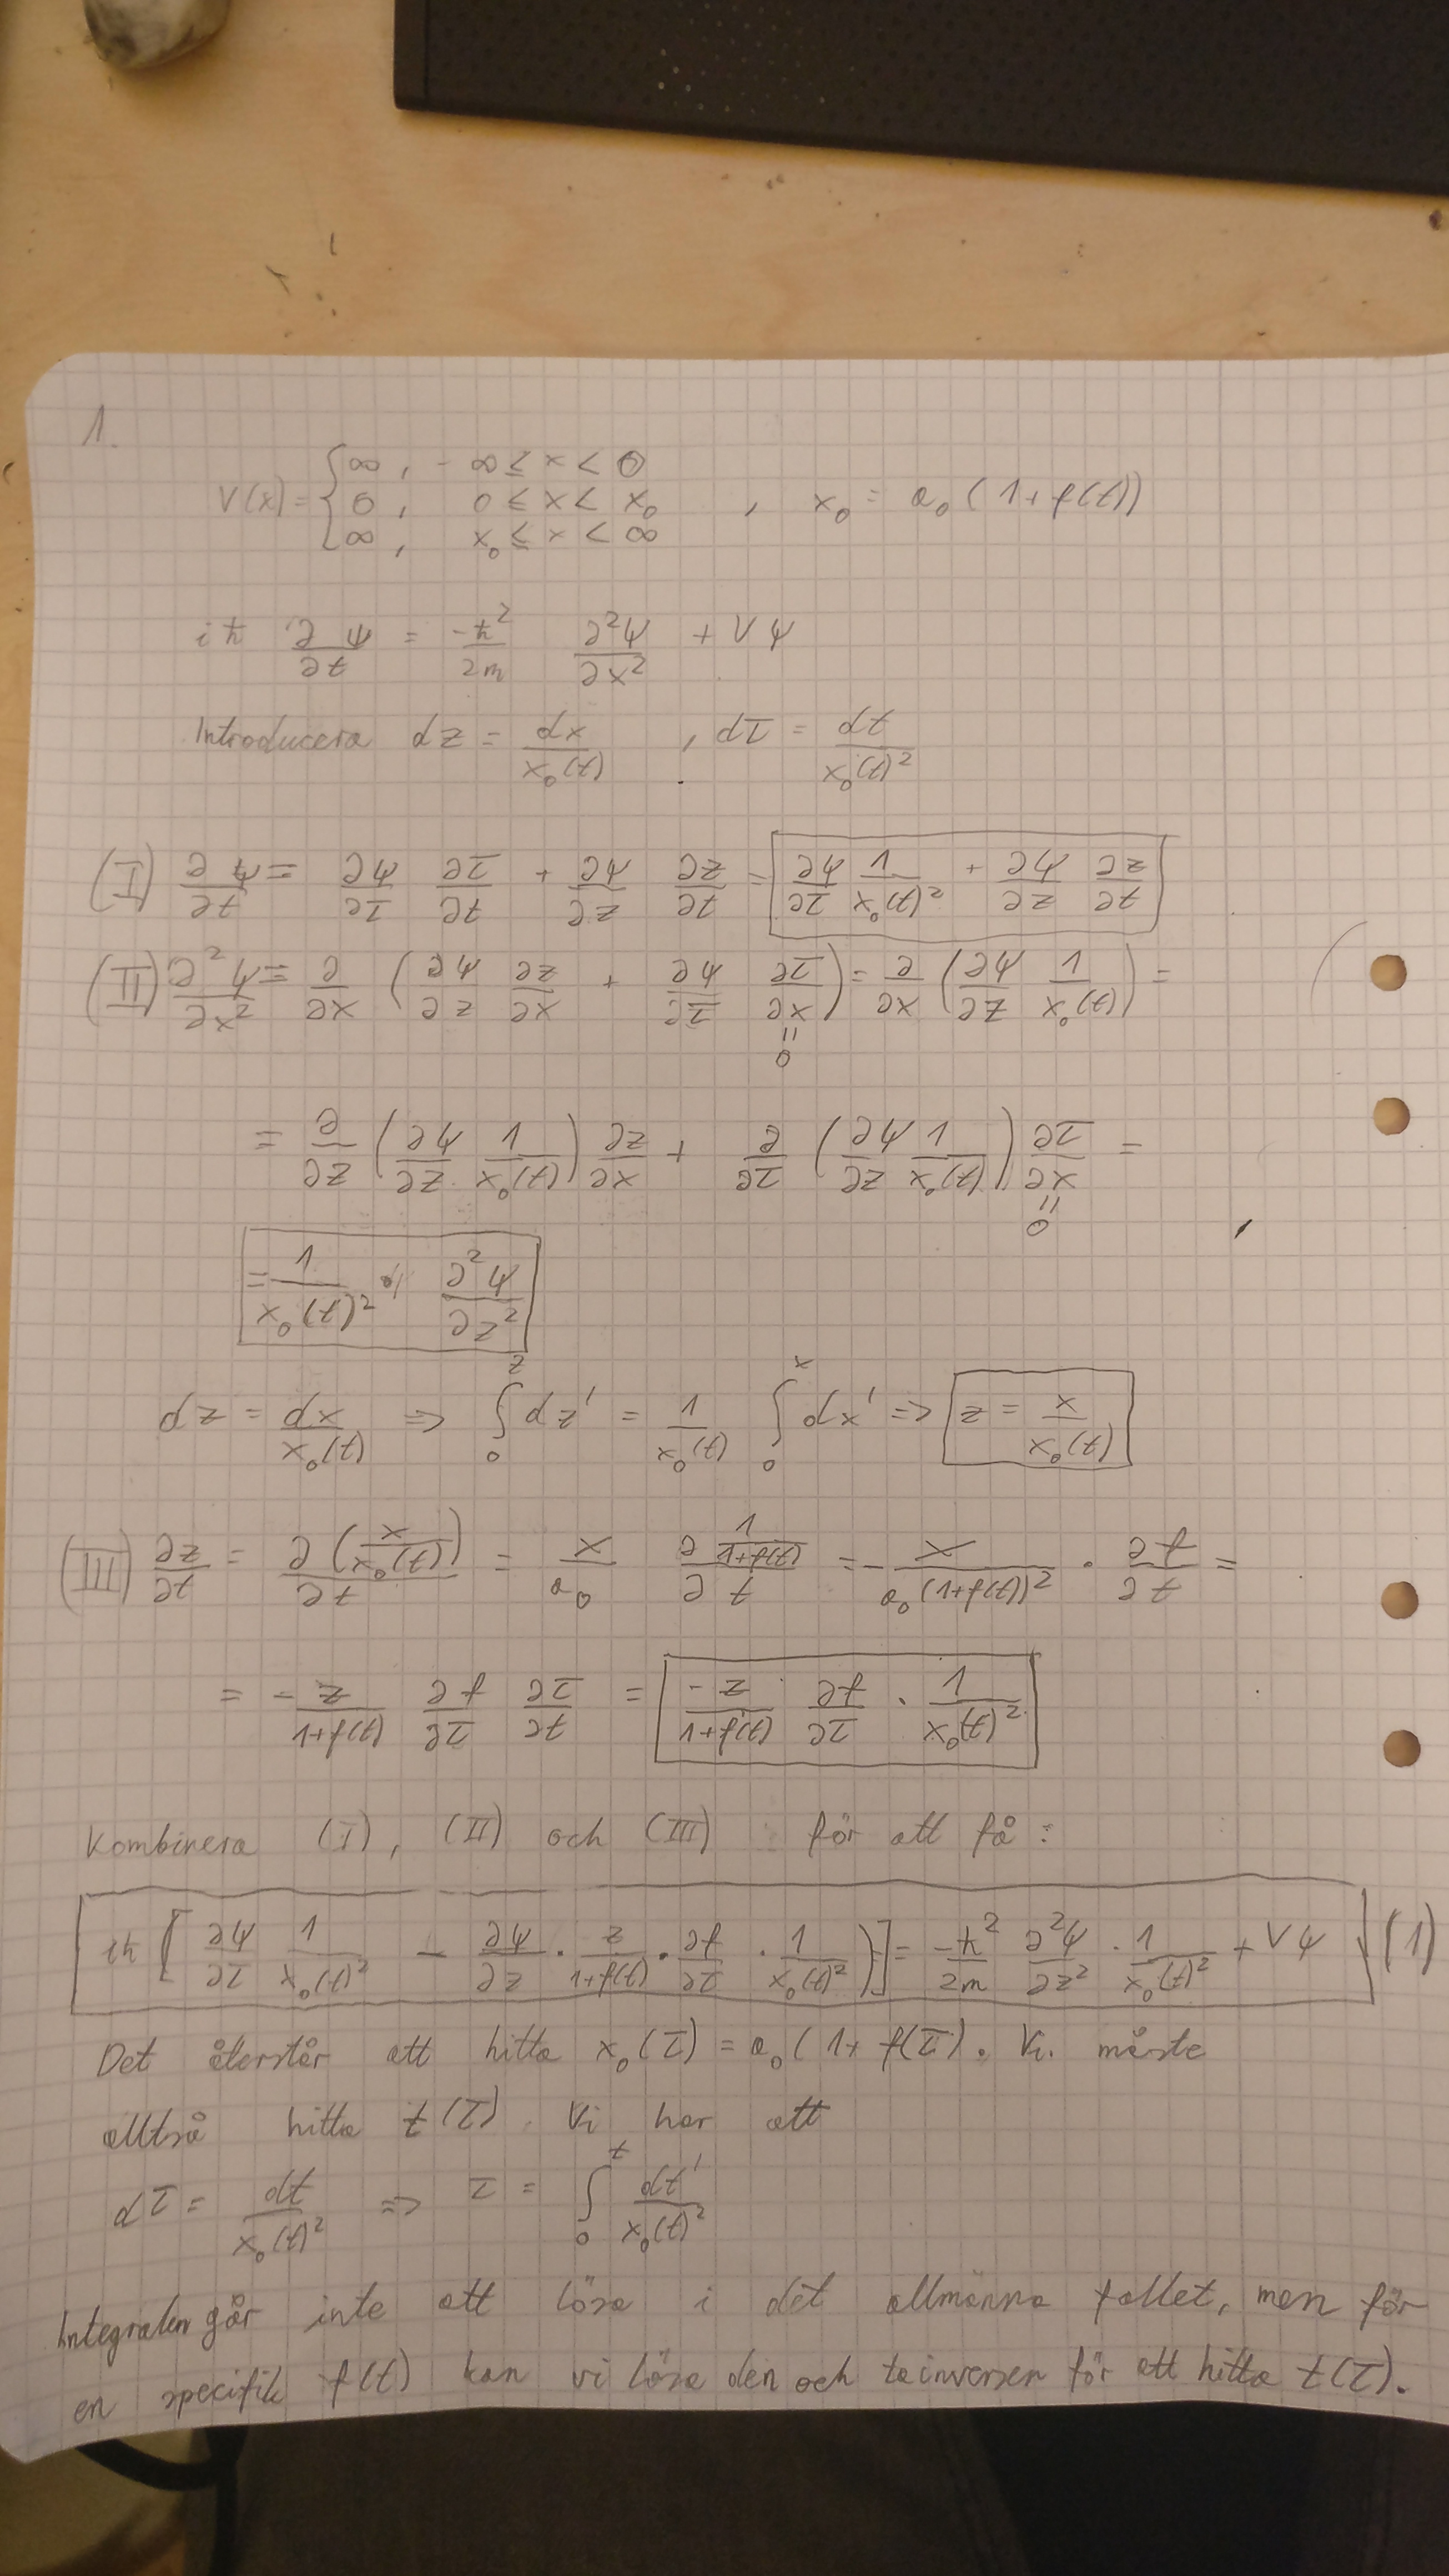 1.
V(x) = { ∞ , -∞ ≤ x < 0
0 , 0 ≤ x < x₀ , x₀ = a₀ (1+f(t))
∞ , x₀ ≤ x < ∞
iħ ∂ψ/∂t = -ħ²/2m ∂²ψ/∂x² + Vψ
Introducera dz = dx/x₀(t) , dτ = dt/x₀(t)²
(I) ∂ψ/∂t = ∂ψ/∂τ ∂τ/∂t + ∂ψ/∂z ∂z/∂t = ∂ψ/∂τ 1/x₀(t)² + ∂ψ/∂z ∂z/∂t
(II) ∂²ψ/∂x² = ∂/∂x (∂ψ/∂z ∂z/∂x + ∂ψ/∂τ ∂τ/∂x) = ∂/∂x (∂ψ/∂z 1/x₀(t)) =
= 0
= ∂/∂z (∂ψ/∂z 1/x₀(t)) ∂z/∂x + ∂/∂τ (∂ψ/∂z 1/x₀(t)) ∂τ/∂x =
= 0
= 1/x₀(t)² ∂²ψ/∂z²
dz = dx/x₀(t) => ∫₀^z dz' = 1/x₀(t) ∫₀^x dx' => z = x/x₀(t)
(III) ∂z/∂t = ∂(x/x₀(t))/∂t = x/a₀ ∂ 1/(1+f(t)) /∂t = - x/(a₀(1+f(t))²) · ∂f/∂t =
= - z/(1+f(t)) ∂f/∂τ ∂τ/∂t = -z/(1+f(t)) ∂f/∂τ · 1/x₀(t)²
Kombinera (I), (II) och (III) för att få :
iħ [ ∂ψ/∂τ 1/x₀(t)² - ∂ψ/∂z · z/(1+f(t)) · ∂f/∂τ · 1/x₀(t)² )] = -ħ²/2m ∂²ψ/∂z² · 1/x₀(t)² + Vψ (1)
Det återstår att hitta x₀(τ) = a₀(1+ f(τ). Vi måste
alltså hitta t(τ). Vi har att
dτ = dt/x₀(t)² => τ = ∫₀^t dt'/x₀(t)²
Integralen går inte att lösa i det allmänna fallet, men för
en specifik f(t) kan vi lösa den och ta inversen för att hitta t(τ).